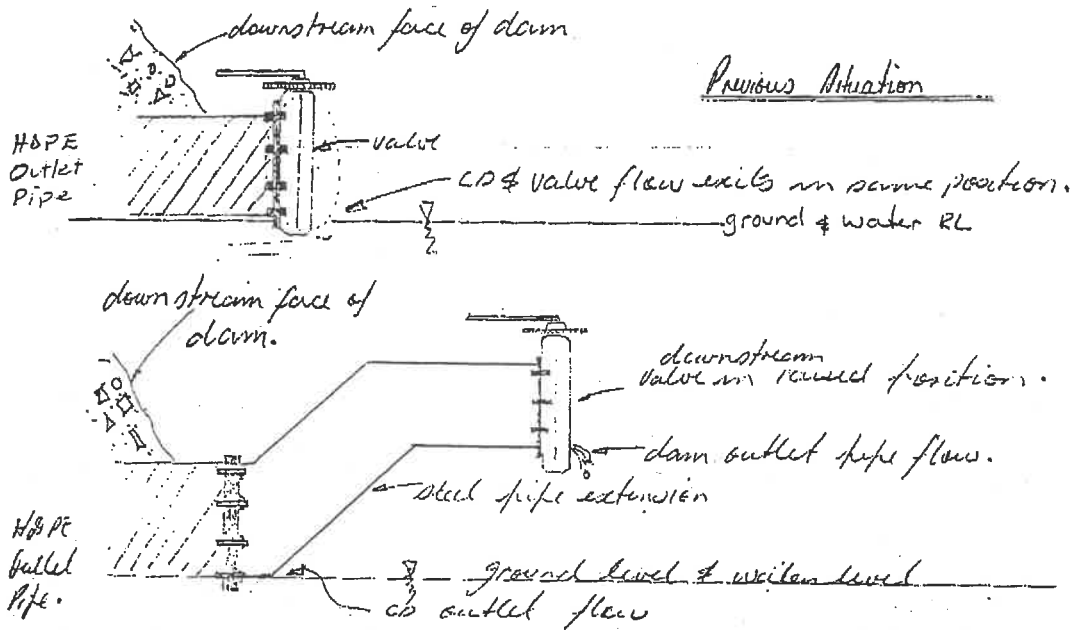 downstream face of dam
Previous Situation
HDPE
Outlet
Pipe
valve
CD & valve flow exits in same position.
ground & water RL
downstream face of
dam.
downstream
valve in raised position.
dam outlet pipe flow.
steel pipe extension
HDPE
Outlet
Pipe.
ground level & water level
CD outlet flow